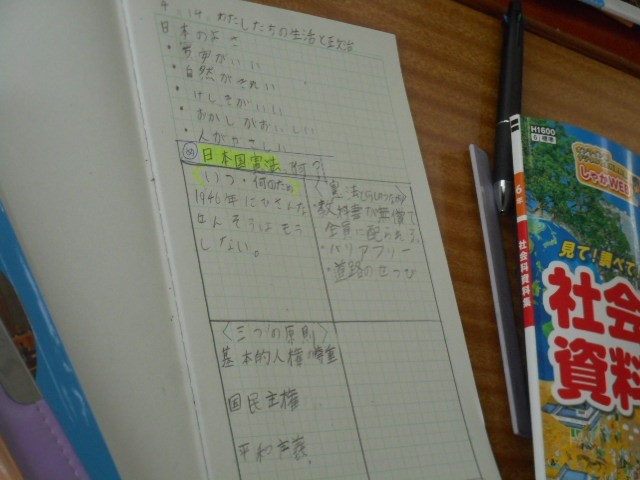 4.19.わたしたちの生活と政治
日本のよさ
・景事がいい
・自然がきれい
・けしきがいい
・おかしがおいしい
・人がやさしい
め 日本国憲法 何？
(いつ・何のため)
1946年にひさんな
せんそうはもう
しない。
〈憲法とくらしのつながり〉
・教科書が無償で
全員に配られる。
・バリアフリー
・道路のせつび
〈三つの原則〉
基本的人権の尊重
国民主権
平和主義
H1600
しゃかWEB
6年
社会科資料集
見て!調べて
社会
資料